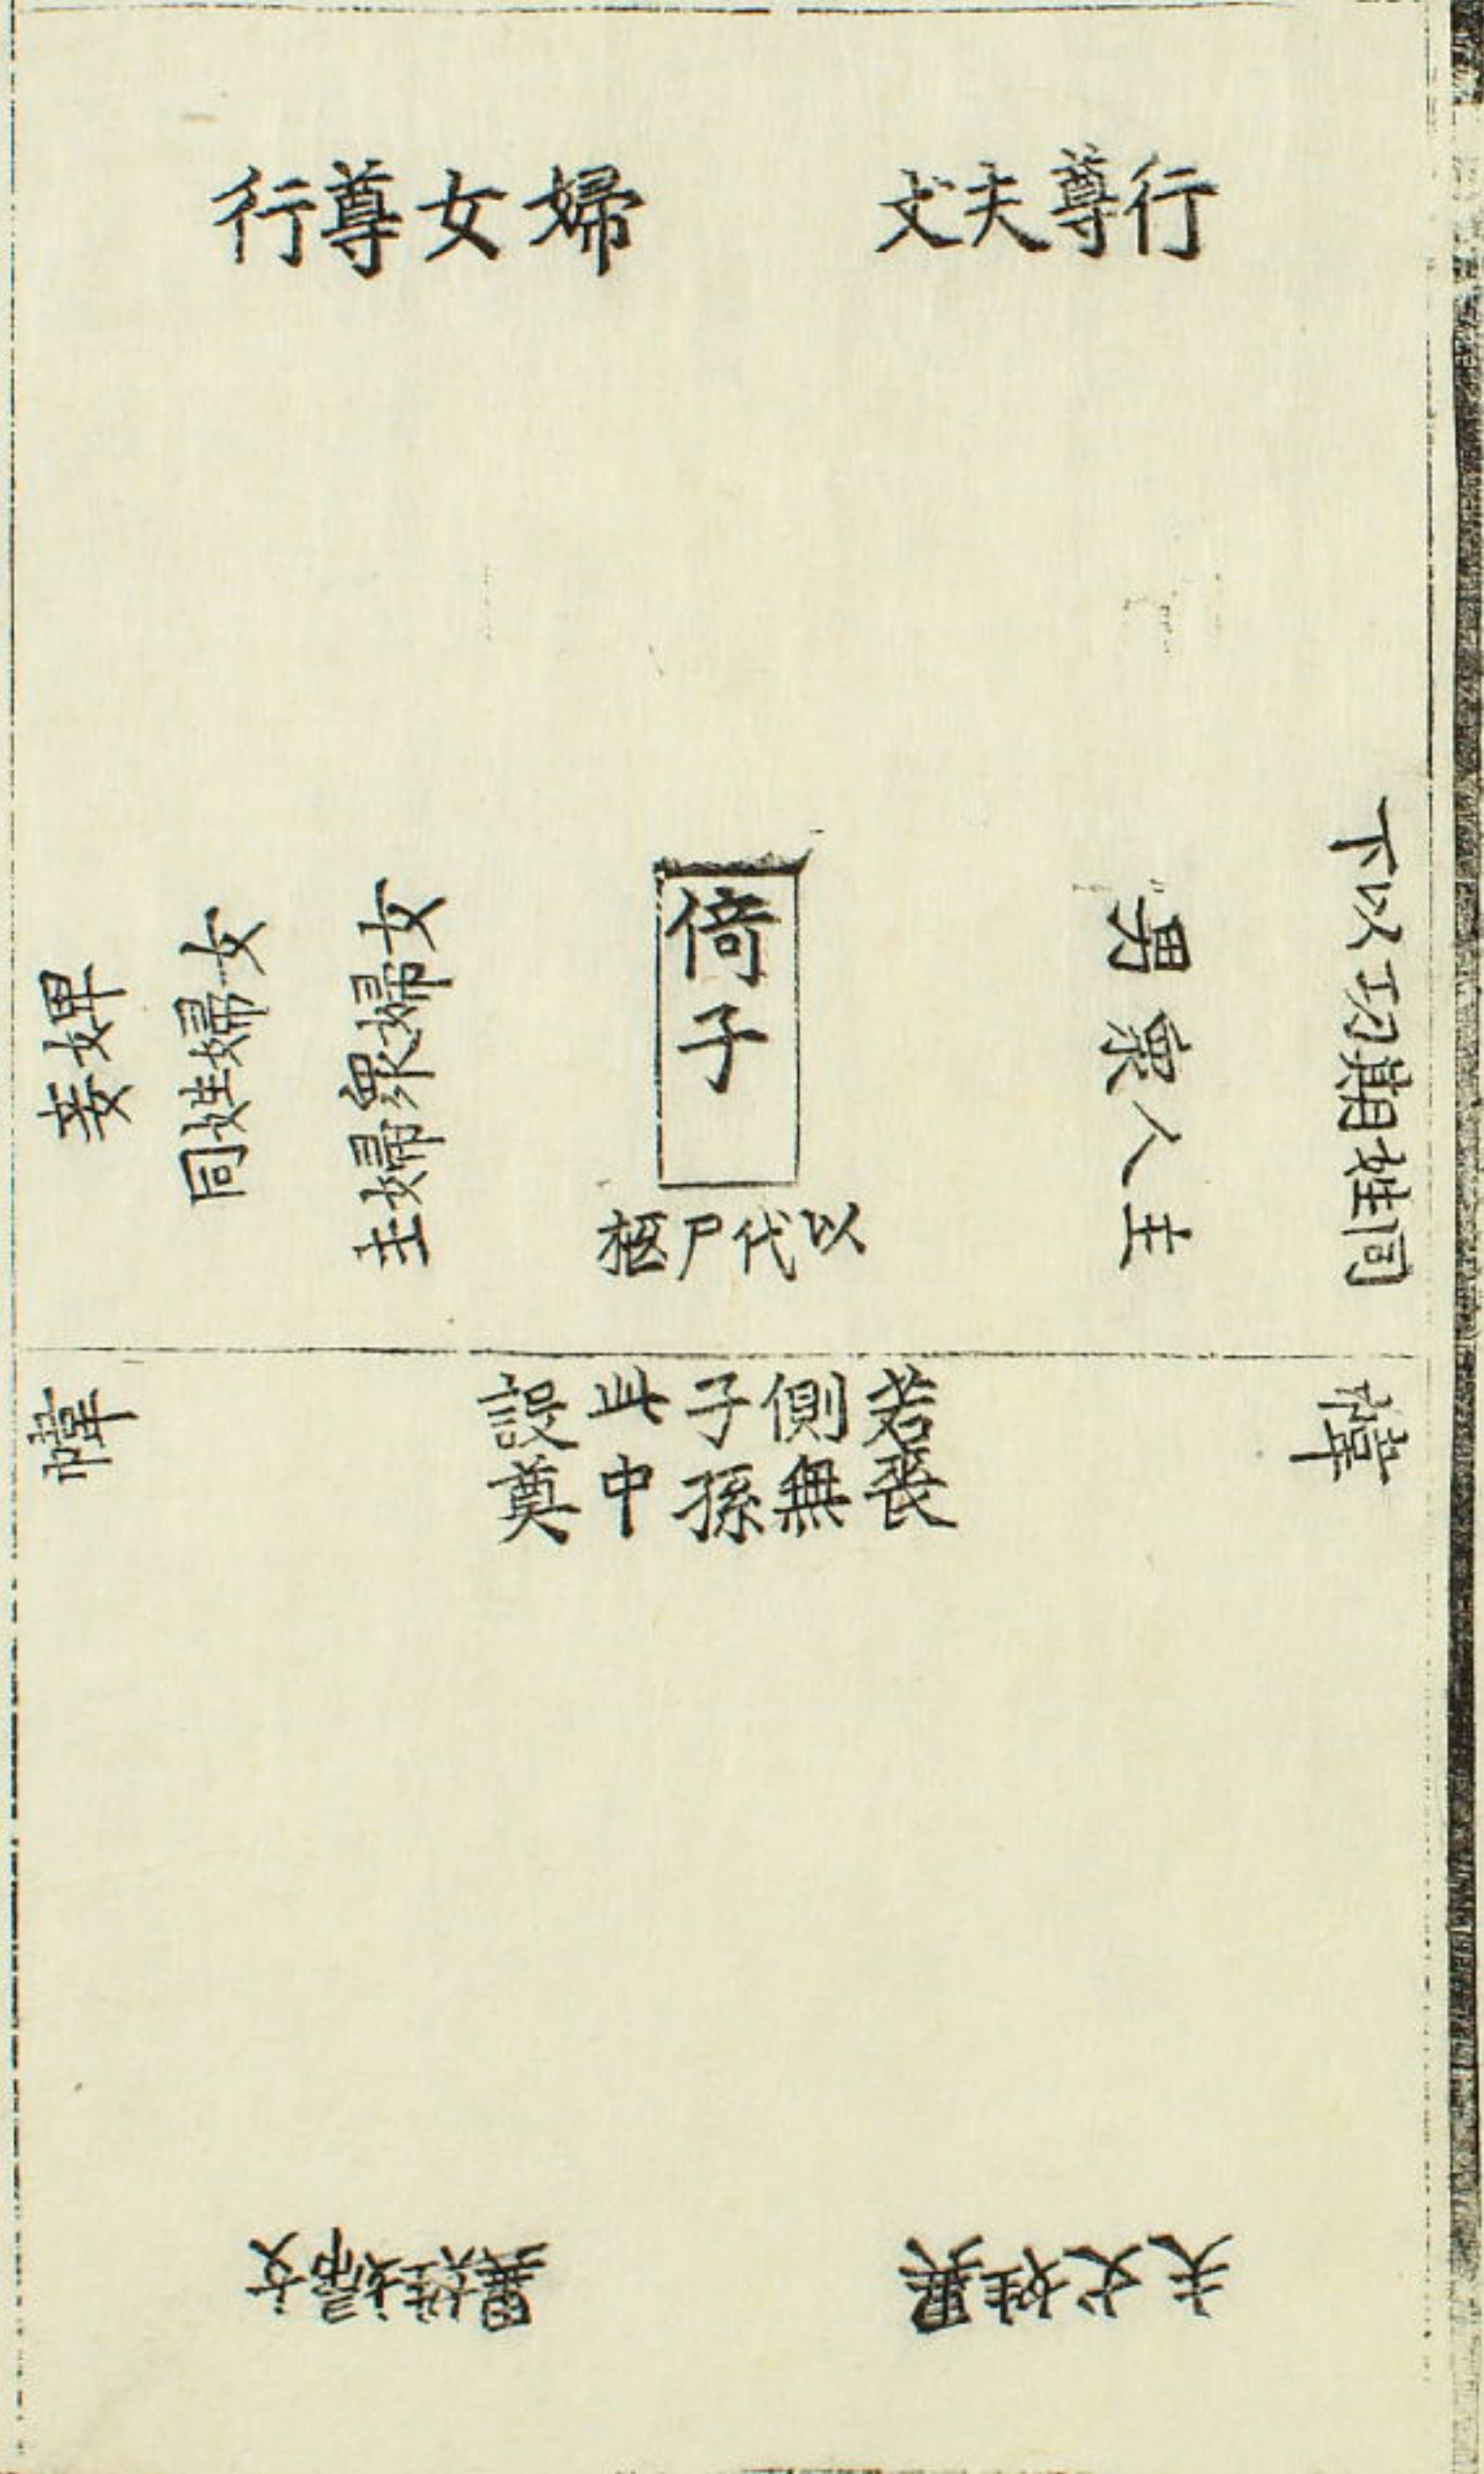 丈夫尊行
婦女尊行
同姓期功以下
主人衆男
倚子
以代尸柩
主婦衆婦女
同姓婦女
妾婢
幃
若喪
側無
子孫
此中
設奠
幃
異姓丈夫
異姓婦女